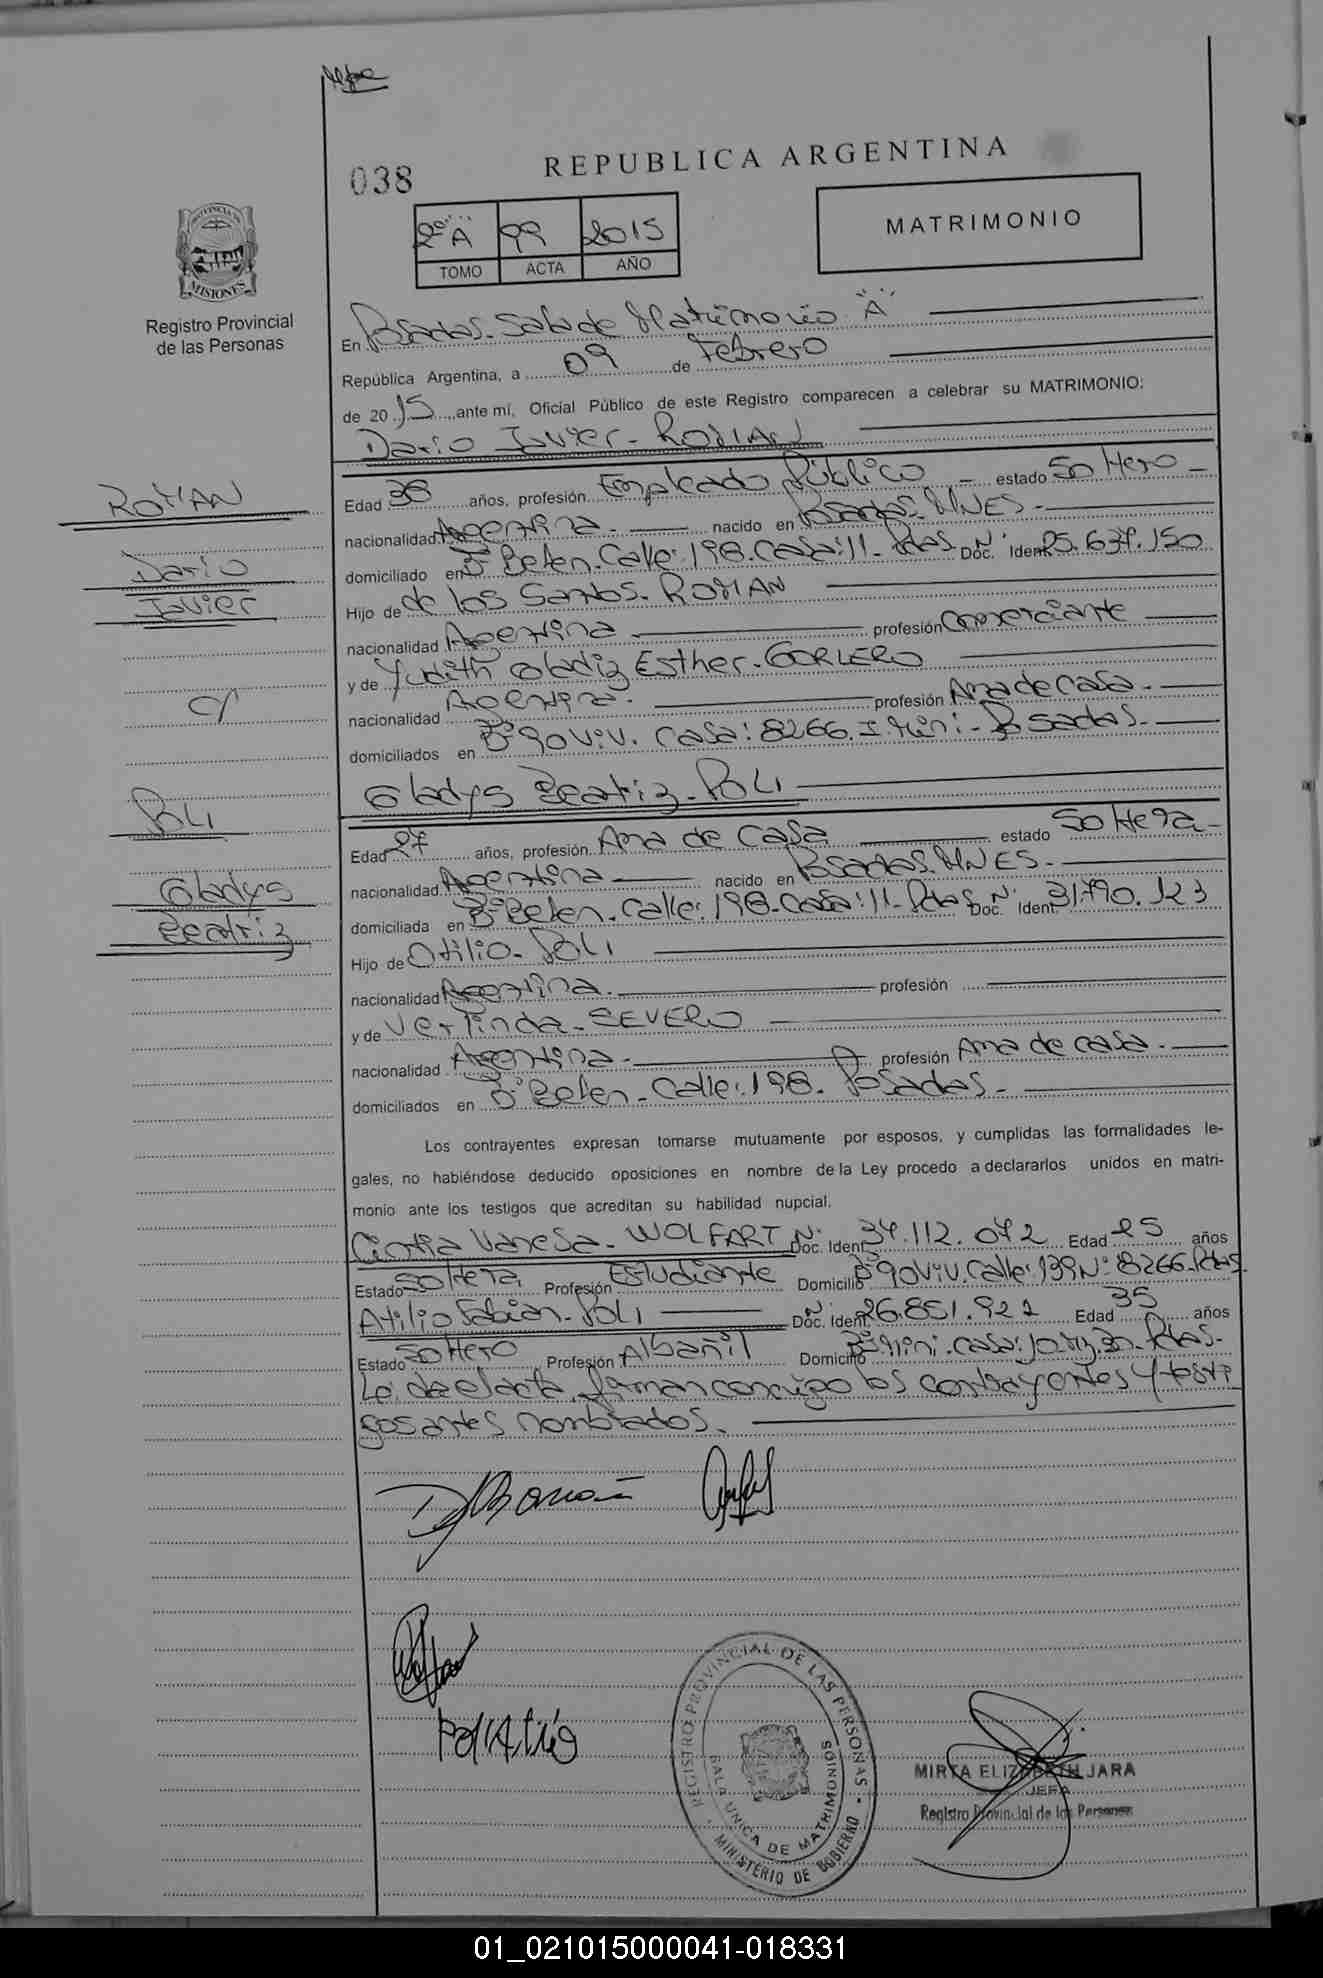 038
REPUBLICA ARGENTINA
2º "A" 99 2015
TOMO ACTA AÑO
MATRIMONIO
PROVINCIA DE
MISIONES
Registro Provincial
de las Personas
En Posadas. Sala de Matrimonio "A"
República Argentina, a 09 de Febrero
de 2015 ante mí, Oficial Público de este Registro comparecen a celebrar su MATRIMONIO:
Dario Javier - ROMAN
ROMAN
Dario
Javier
c/
POLI
Gladys
Beatriz
Edad 38 años, profesión Empleado Público - estado Soltero -
nacionalidad Argentina. nacido en Posadas. MNES.
domiciliado en Bº Belen. Calle: 198. Casa: 11. Pdas. Nº Doc. Ident. 25.634.150
Hijo de de los Santos. ROMAN
nacionalidad Argentina profesión Comerciante
y de Yudith Gladiz Esther. GORLERO
nacionalidad Argentina. profesión Ama de casa.
domiciliados en Bº 90 Viv. Casa: 8266. I. Mini. Posadas.
Gladys Beatriz. POLI
Edad 27 años, profesión Ama de casa estado Soltera -
nacionalidad Argentina nacido en Posadas. MNES.
domiciliada en Bº Belen. Calle: 198. Casa: 11. Pdas Nº Doc. Ident. 31.790.123
Hijo de Otilio. POLI
nacionalidad Argentina. profesión
y de Verlinda. SEVERO
nacionalidad Argentina. profesión Ama de casa.
domiciliados en Bº Belen. Calle: 198. Posadas.
Los contrayentes expresan tomarse mutuamente por esposos, y cumplidas las formalidades le-
gales, no habiéndose deducido oposiciones en nombre de la Ley procedo a declararlos unidos en matri-
monio ante los testigos que acreditan su habilidad nupcial.
Cintia Vanesa. WOLFART Nº Doc. Ident. 34.112.042 Edad 25 años
Estado Soltera Profesión Estudiante Domicilio Bº 90 Viv. Calle: 139 Nº: 8266. Pdas.
Atilio Fabian. POLI Nº Doc. Ident. 26.851.922 Edad 35 años
Estado Soltero Profesión Albañil Domicilio Bº Mini. Casa: Pdas.
Leida el acta, firman conmigo los contrayentes y testi
gos antes nombrados.
Poli Atilio
REGISTRO PROVINCIAL DE LAS PERSONAS
SALA UNICA DE MATRIMONIOS
MINISTERIO DE GOBIERNO
MIRTA ELIZABETH JARA
JEFA
Registro Provincial de las Personas
01_021015000041-018331